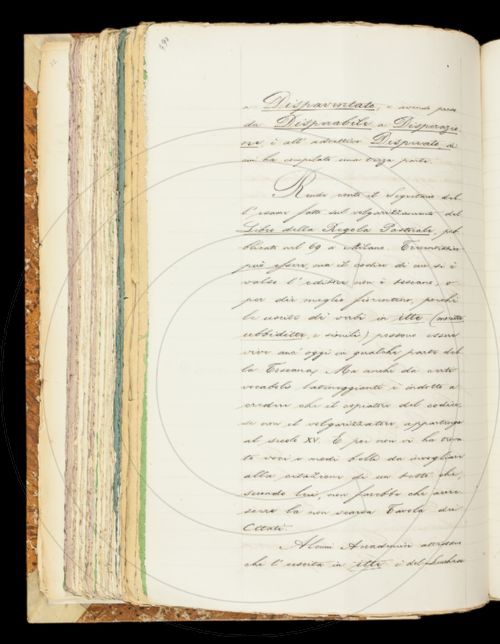 a Dispaventato, e avendo para
da Disperabile a Disperazio
ne, e all' adiettivo Disperato di
cui ha compilato una terza parte.
Rende conto il Segretario del
l' esame fatto sul volgarizzamento del
Libro della Regola Pastorale, pub
blicato nel 69 a Milano.
può essere, ma il codice di cui si è
valso l' editore non è sicuro, o
per dir meglio fiorentino, perchè
le uscite dei verbi in itte (
ubbiditte, e simili) possono essere
vive anc' oggi in qualche parte del
la Toscana. Ma anche da certi
vocaboli latineggianti è indotto a
credere che il copiatore del codice,
se non il volgarizzatore, appartenga
al secolo XV. E poi non vi ha trova
to voci o modi belli da invogliare
alla citazione di un testo che,
secondo lui, non farebbe che accre
scere la non scarsa Tavola dei
Citati.
Alcuni Accademici
che l' uscita in itte è del